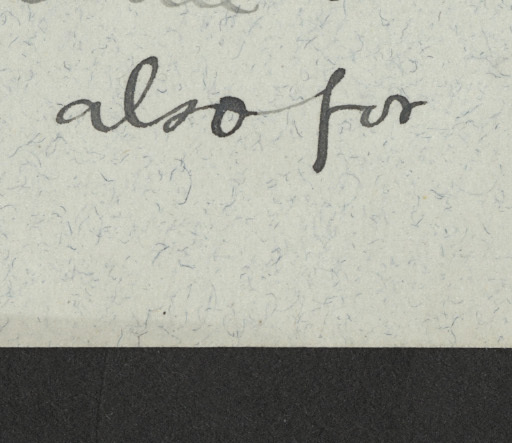 also for